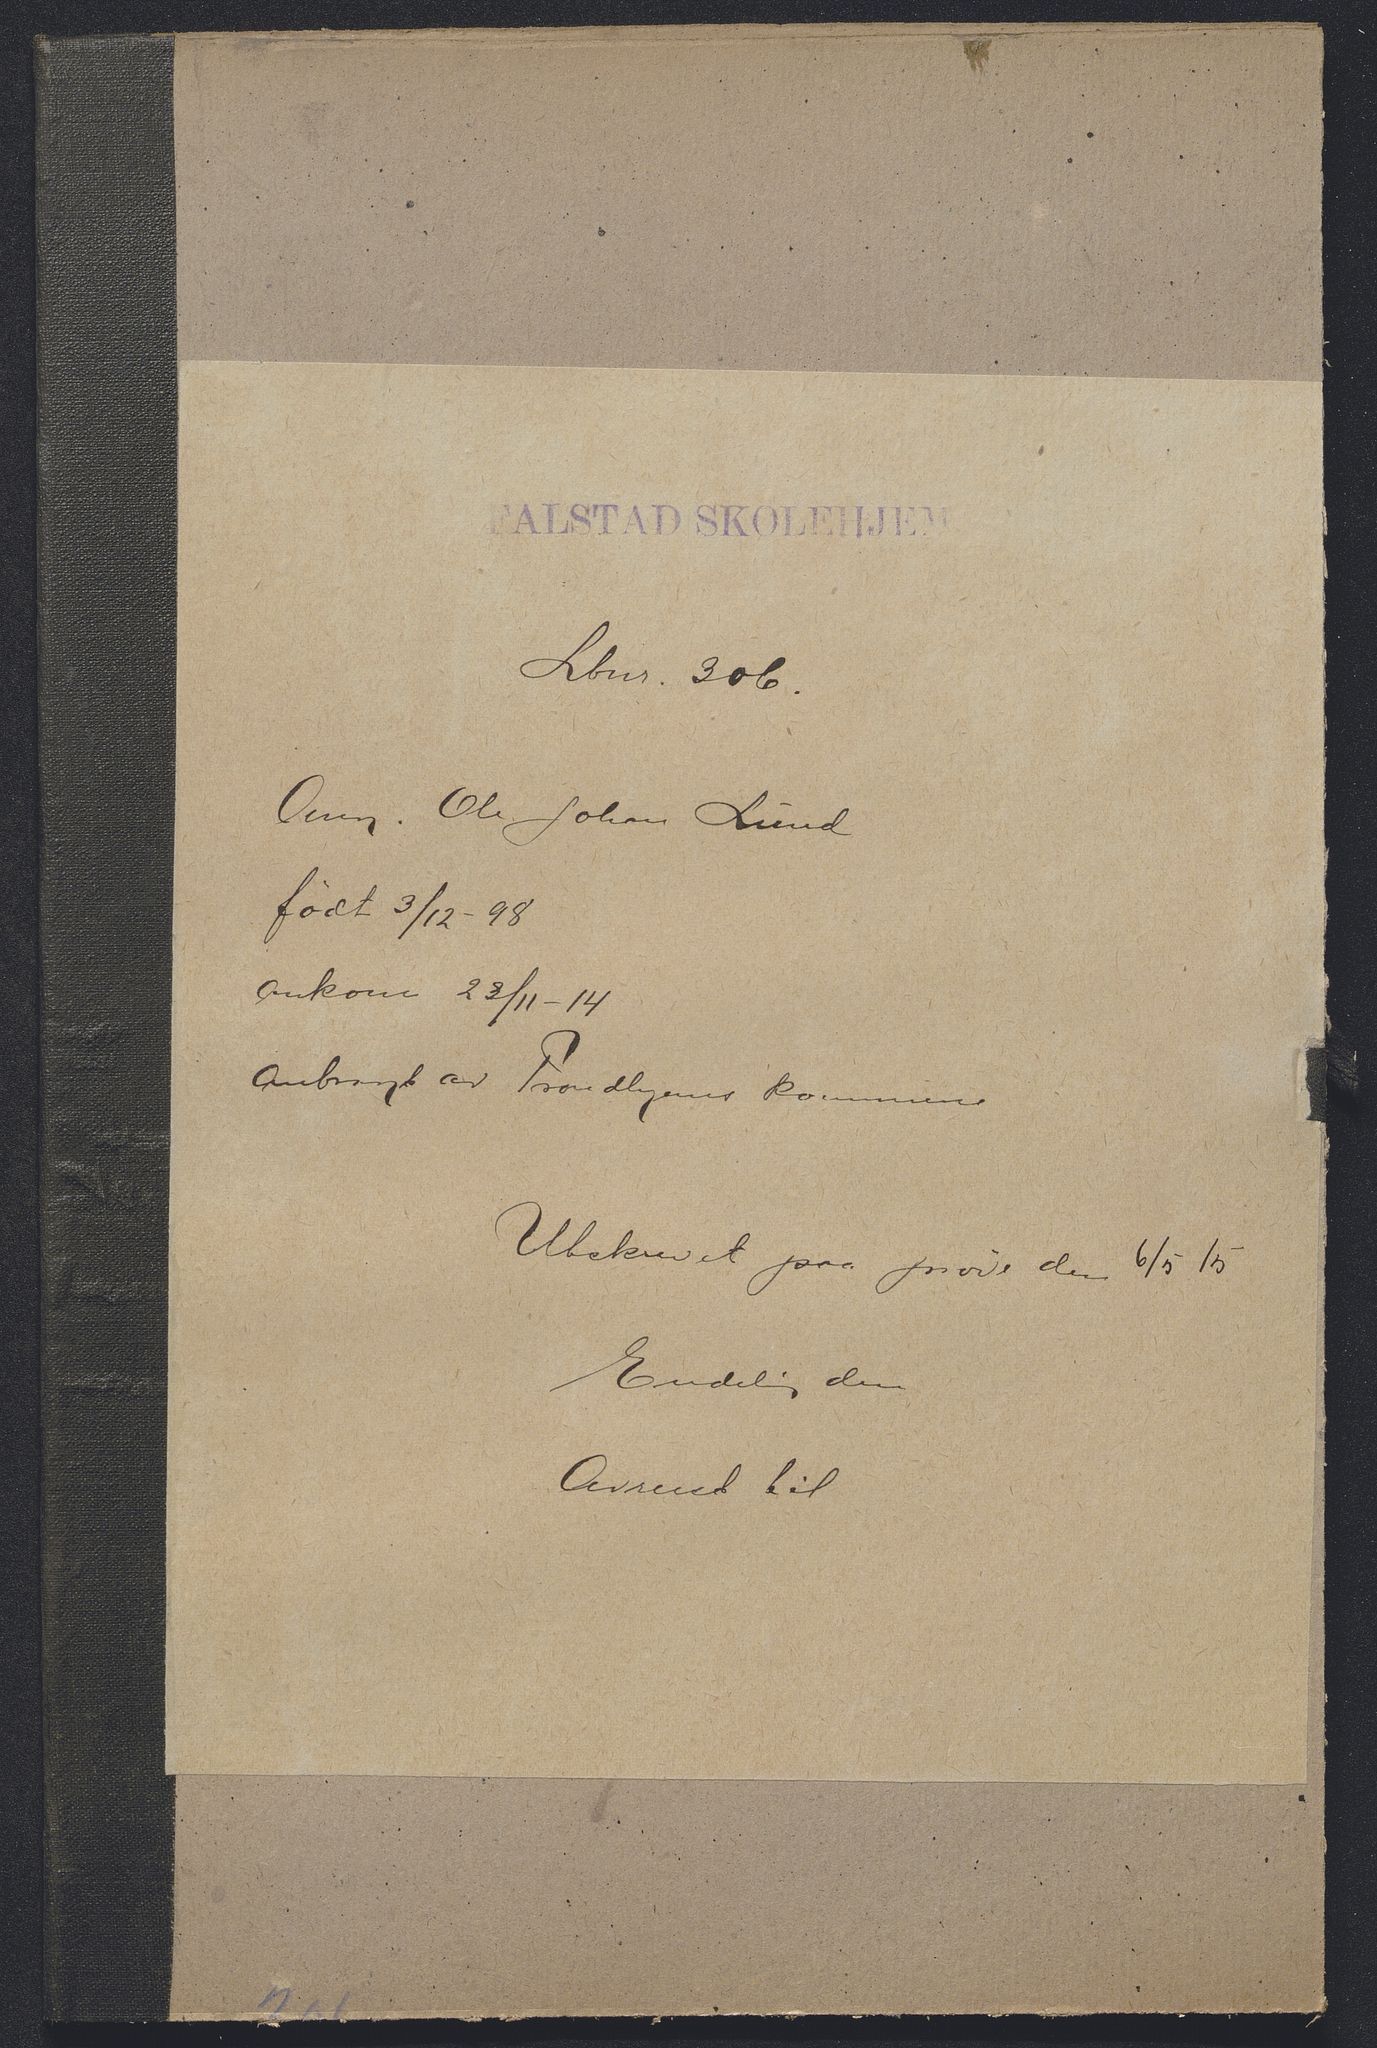 FALSTAD SKOLEHJEM
Lbnr. 306.
Ang. Ole Johan Lund
födt 3/12 - 98
ankom 23/11 - 14
anbragt av Trondhjems kommune
Utskrevet paa pröve den 6/5 15
Endelig den
Avreist til